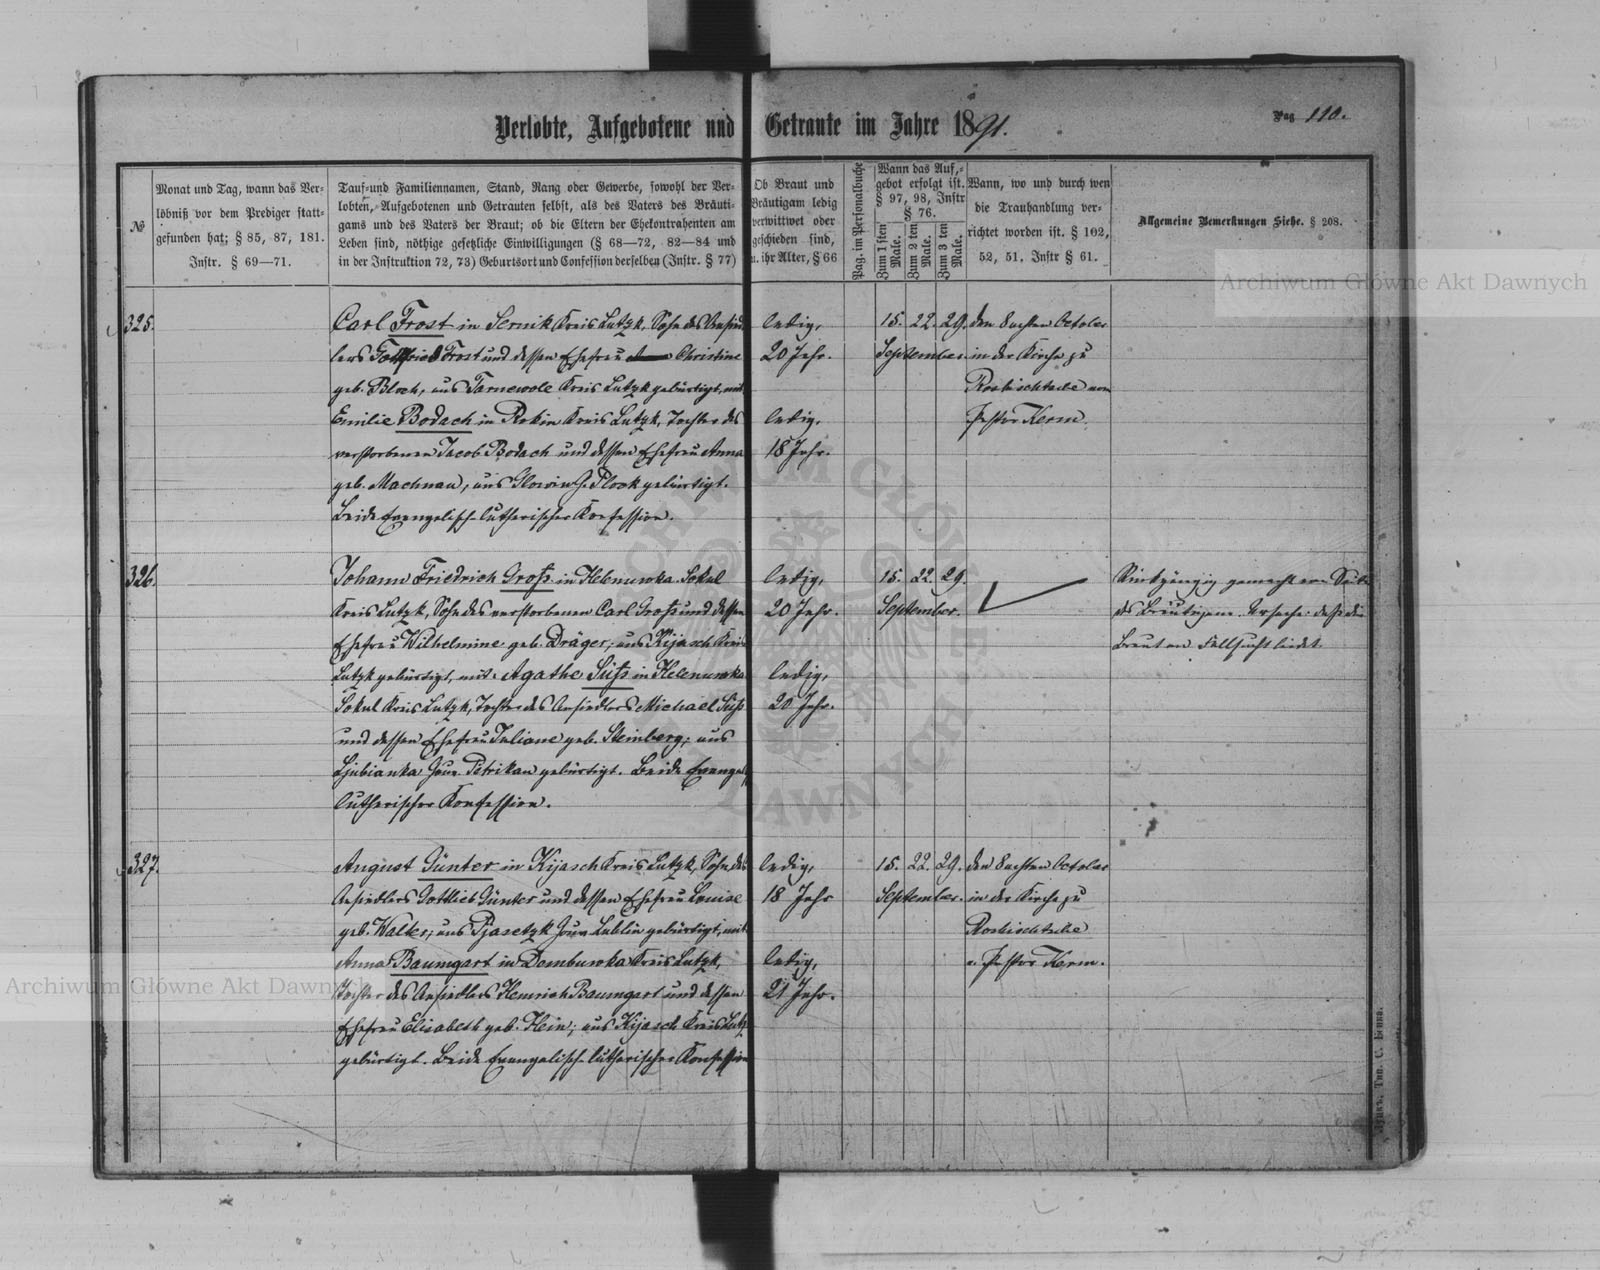 Verlobte, Aufgebotene und Getraute im Jahre 1891.
Pag 110.
№
Monat und Tag, wann das Ver-
löbniß vor dem Prediger statt-
gefunden hat; § 85, 87, 181.
Instr. § 69—71.
Tauf- und Familiennamen, Stand, Rang oder Gewerbe, sowohl der Ver-
lobten, Aufgebotenen und Getrauten selbst, als des Vaters des Bräuti-
gams und des Vaters der Braut; ob die Eltern der Ehekontrahenten am
Leben sind, nöthige gesetzliche Einwilligungen (§ 68—72, 82—84 und
in der Instruktion 72, 73) Geburtsort und Confession derselben (Instr. § 77)
Ob Braut und
Bräutigam ledig
verwittwet oder
geschieden sind,
u. ihr Alter, § 66
Pag. im Personalbuche
Wann das Auf-
gebot erfolgt ist.
§ 97, 98, Instr
§ 76.
Zum 1 sten Male.
Zum 2 ten Male.
Zum 3 ten Male.
Wann, wo und durch wen
die Trauhandlung ver-
richtet worden ist. § 102,
52, 51, Instr § 61.
Allgemeine Bemerkungen Siehe. § 208.
325.
Carl Frost in Sernik Kreis Lutzk, Sohn des Ansied-
lers Gottfried Frost und dessen Ehefrau Christine
geb. Bloch, aus Tarnewole Kreis Lutzk gebürtigt, mit
Emilie Bodach in Rokin Kreis Lutzk, Tochter des
verstorbenen Jacob Bodach und dessen Ehefrau Anna
geb. Machnau, aus G. Plock gebürtigt.
Beide Evangelisch-lutherischer Konfession.
ledig,
20 Jahr.
ledig,
18 Jahr.
15. 22. 29.
September.
den 8ten October
in der Kirche zu
Roshischtsche vom
Pastor Kerm.
326.
Johann Friedrich Groß in Helenuwka Sokul
Kreis Lutzk, Sohn des verstorbenen Carl Groß und dessen
Ehefrau Wilhelmine geb. Dräger, aus Kijasch Kreis
Lutzk gebürtigt, mit Agathe Süß in Helenuwka
Sokul Kreis Lutzk, Tochter des Ansiedlers Michael Süß
und dessen Ehefrau Juliane geb. Steinberg, aus
Ljubianka Gouv. Petrikau gebürtigt. Beide Evangel.
lutherischer Konfession.
ledig,
20 Jahr.
ledig,
20 Jahr.
15. 22. 29.
September.
Rückgängig gemacht von Seite
des Bräutigams. Ursache: daß die
Braut an Fallsucht leidet.
327.
August Günter in Kijasch Kreis Lutzk, Sohn des
Ansiedlers Gottlieb Günter und dessen Ehefrau Louise
geb. Walter, aus Pjasetzk Gouv Lublin gebürtigt, mit
Anna Baumgart in Dombuwka Kreis Lutzk,
Tochter des Ansiedlers Heinrich Baumgart und dessen
Ehefrau Elisabeth geb. Hein, aus Kijasch Kreis Lutzk
gebürtigt. Beide Evangelisch-lutherischer Konfession
ledig,
18 Jahr
ledig,
21 Jahr.
15. 22. 29.
September.
den 8ten October
in der Kirche zu
Roshischtsche
v. Pastor Kerm.
Тип. С. Бенка.
Archiwum Główne Akt Dawnych
Archiwum Główne Akt Dawnych
ARCHIWUM GŁÓWNE
DAWNYCH